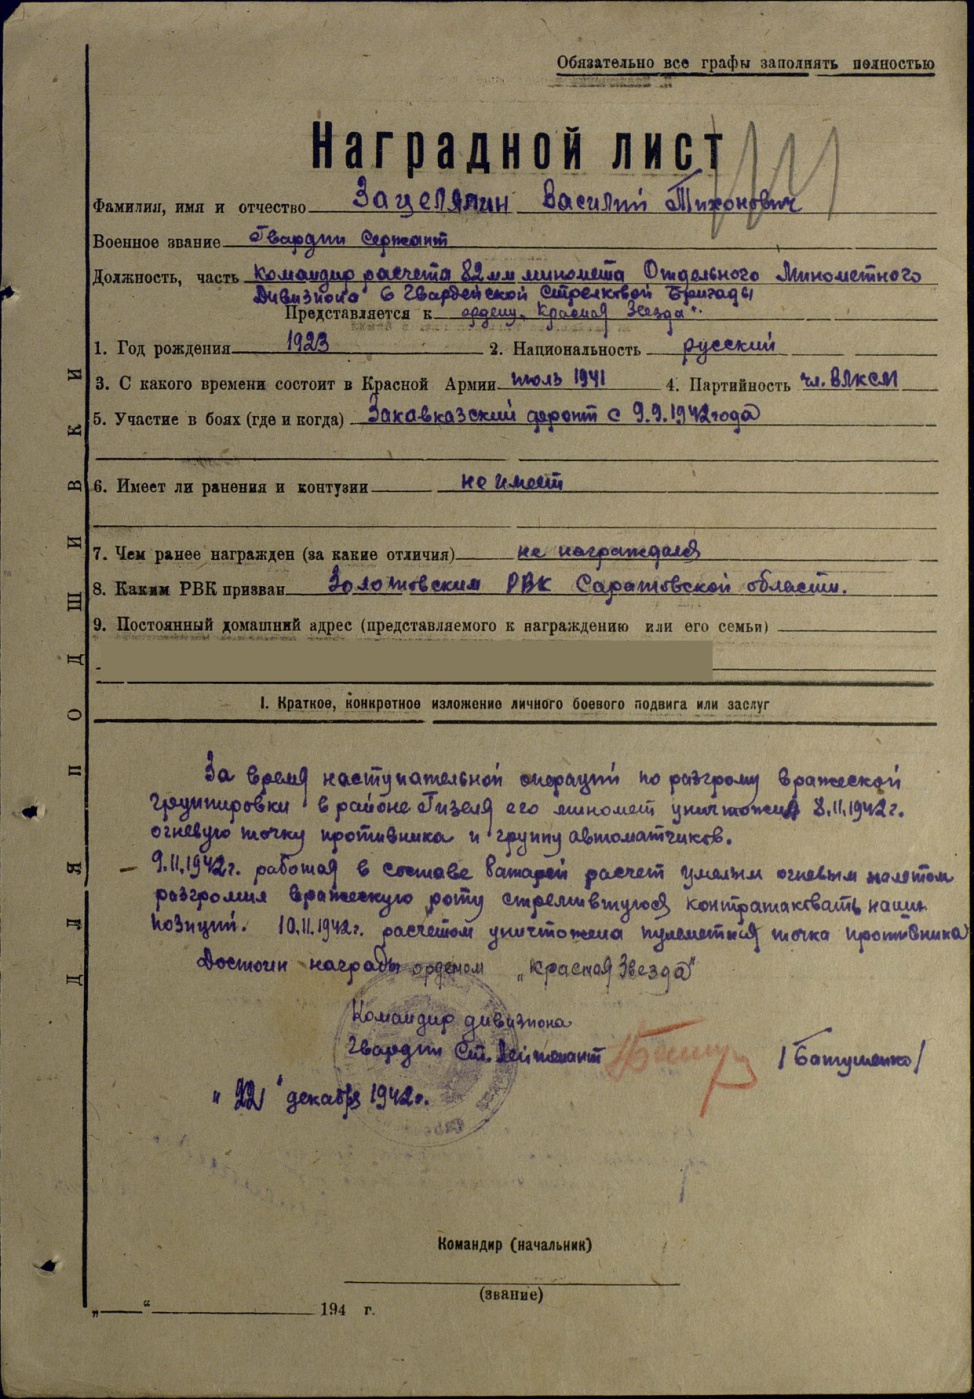 Обязательно все графы заполнять полностью
Наградной лист
Фамилия, имя и отчество Зацепилин Василий Тихонович
Военное звание Гвардии Сержант
Должность, часть Командир расчета 82мм миномета Отдельного Минометного
Дивизиона 6 Гвардейской Стрелковой Бригады
Представляется к ордену „Красная Звезда".
1. Год рождения 1923 2. Национальность русский
3. С какого времени состоит в Красной Армии июль 1941 4. Партийность чл. ВЛКСМ
5. Участие в боях (где и когда) Закавказский фронт с 9.9.1942 года
6. Имеет ли ранения и контузии не имеет
7. Чем ранее награжден (за какие отличия) не награждался
8. Каким РВК призван Золотовским РВК Саратовской области.
9. Постоянный домашний адрес (представляемого к награждению или его семьи)
ДЛЯ ПОДШИВКИ
I. Краткое, конкретное изложение личного боевого подвига или заслуг
За время наступательной операций по разгрому вражеской
группировки в районе Гизеля его миномет уничтожил 8.11.1942г.
огневую точку противника и группу автоматчиков.
9.11.1942г. работая в составе батареи расчет умелым огневым налетом
разгромил вражескую роту стремившуюся контратаковать наши
позиций. 10.11.1942г. расчетом уничтожена пулеметная точка противника
Достоин награды орденом „Красная Звезда"
Командир дивизиона
Гвардии Ст. Лейтенант /Батушенко/
„22" декабря 1942г.
Командир (начальник)
(звание)
„ “ 194 г.